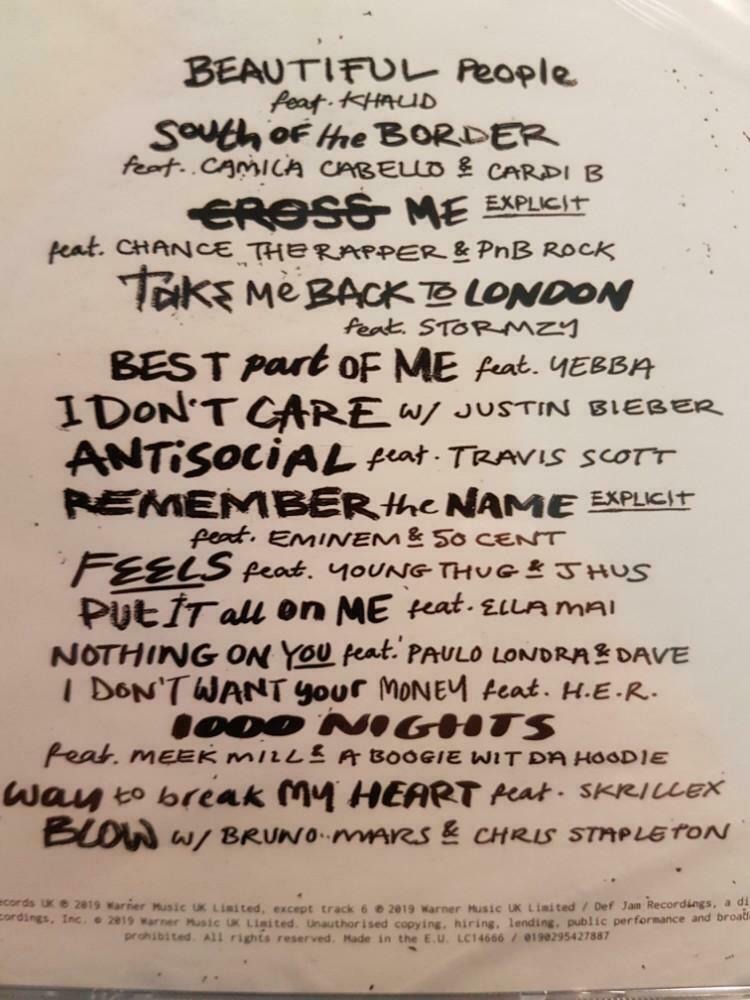 BEAUTIFUL People
feat. KHALID
South OF the BORDER
feat. CAMILA CABELLO & CARDI B
CROSS ME EXPLICIT
feat. CHANCE THE RAPPER & PnB ROCK
TAKE Me BACK TO LONDON
feat. STORMZY
BEST part OF ME feat. YEBBA
I DON'T CARE w/ JUSTIN BIEBER
ANTiSOCiAL feat. TRAVIS SCOTT
REMEMBER the NAME EXPLICIT
feat. EMINEM & 50 CENT
FEELS feat. YOUNG THUG & J HUS
PUt IT all on ME feat. ELLA MAI
NOTHING ON YOU feat. PAULO LONDRA & DAVE
I DON'T WANT your MONEY feat. H.E.R.
1000 NIGHTS
feat. MEEK MILL & A BOOGIE WIT DA HOODIE
way to break MY HEART feat. SKRILLEX
BLOW w/ BRUNO MARS & CHRIS STAPLETON
cords UK ℗ 2019 Warner Music UK Limited, except track 6 ℗ 2019 Warner Music UK Limited / Def Jam Recordings, a di
cordings, Inc. © 2019 Warner Music UK Limited. Unauthorised copying, hiring, lending, public performance and broad
prohibited. All rights reserved. Made in the E.U. LC14666 / 0190295427887